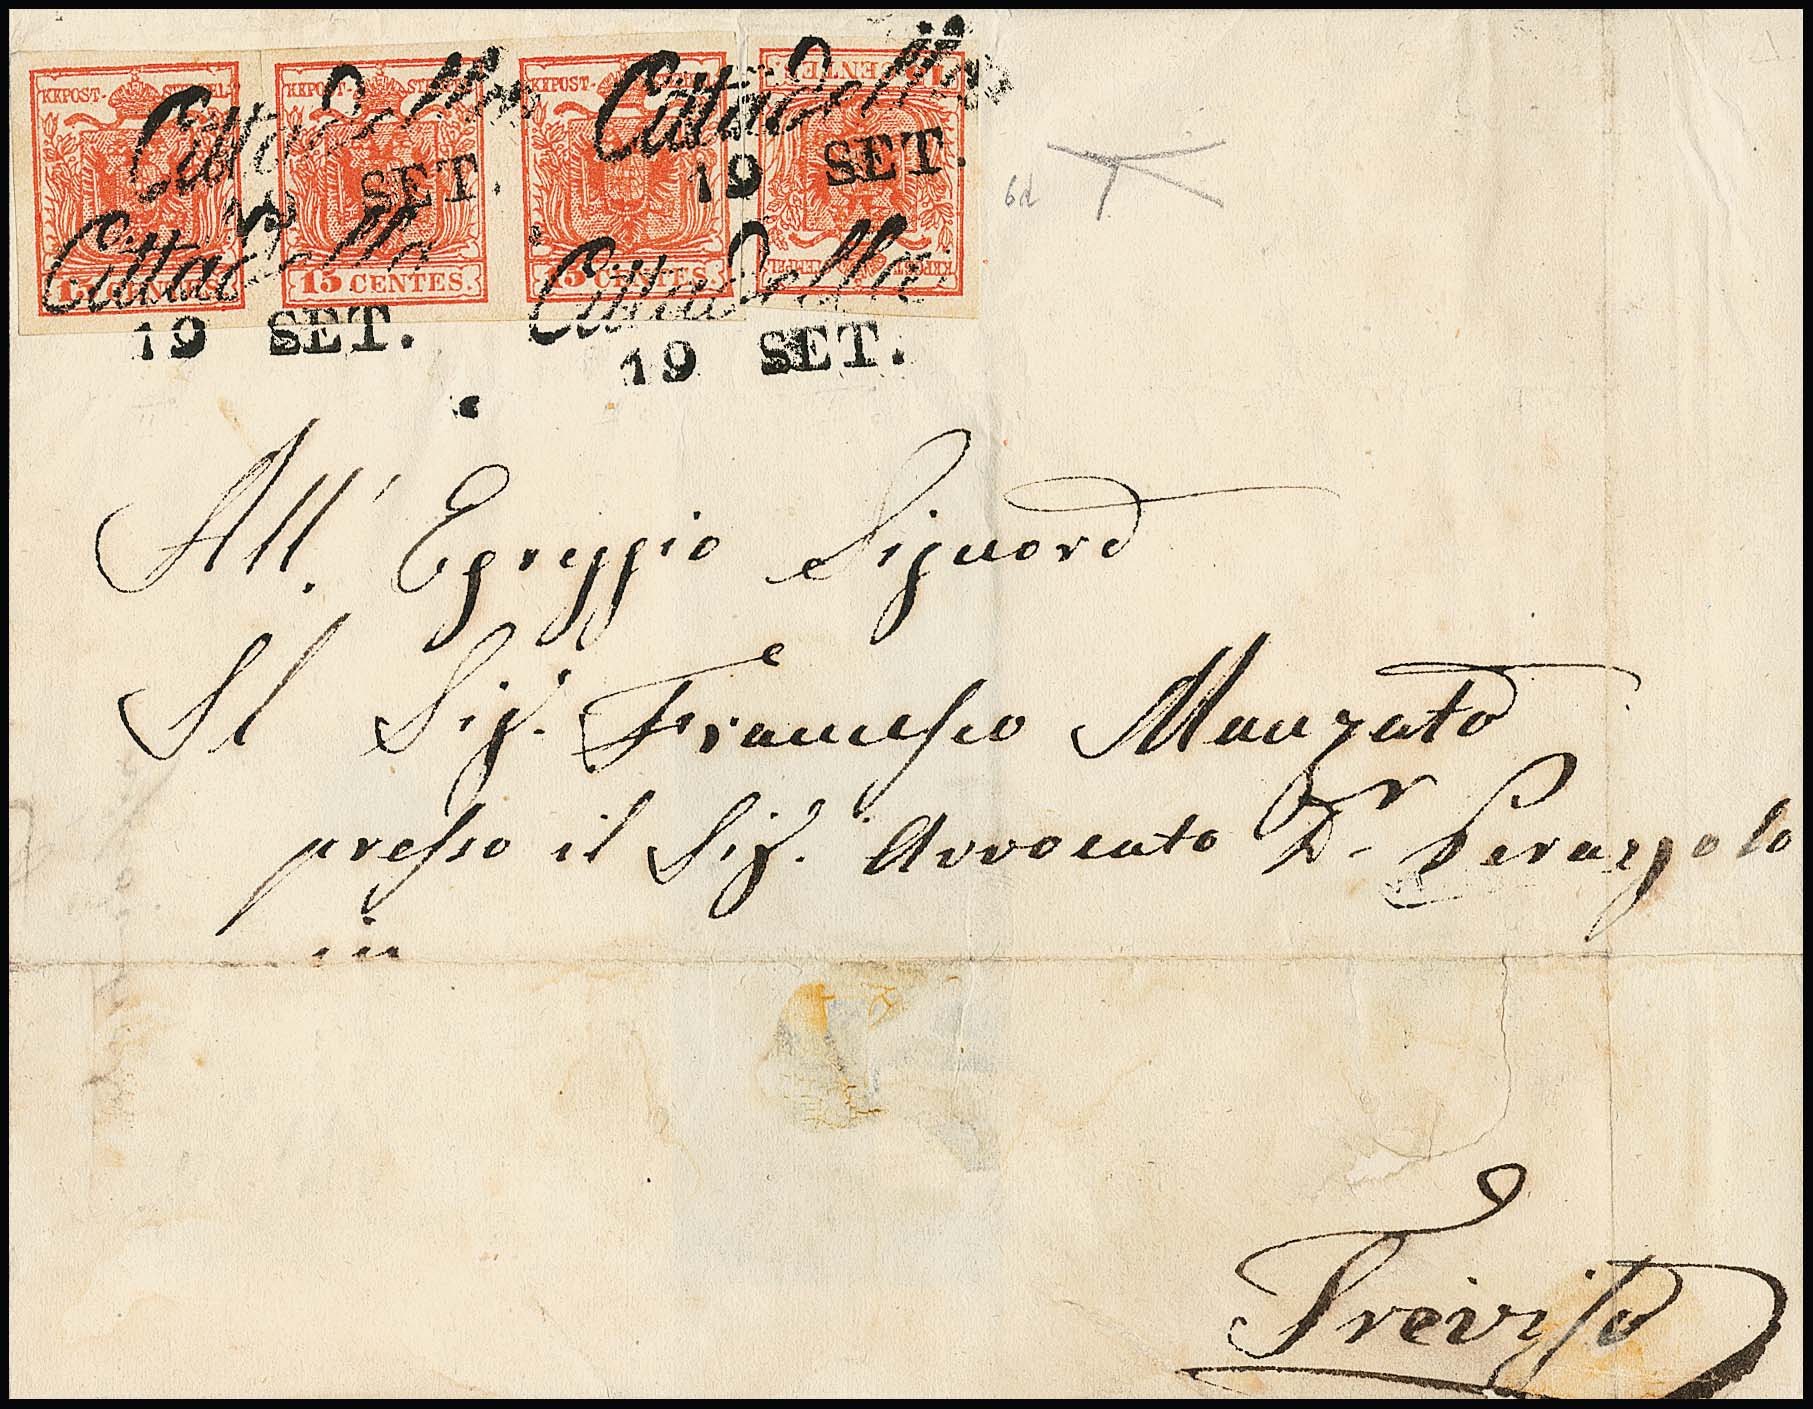 KKPOST- STEMPEL KKPOST- STEMPEL KKPOST- STEMPEL
Cittadella
19 SET.
Cittadella
19 SET.
Cittadella
19 SET.
Cittadella
19 SET.
15 CENTES. 15 CENTES. 15 CENTES.
6d
All' Egreggio Signore
Il Sig.r Francesco Manzato
presso il Sig.r Avvocato Dr Perazzolo
in
Treviso